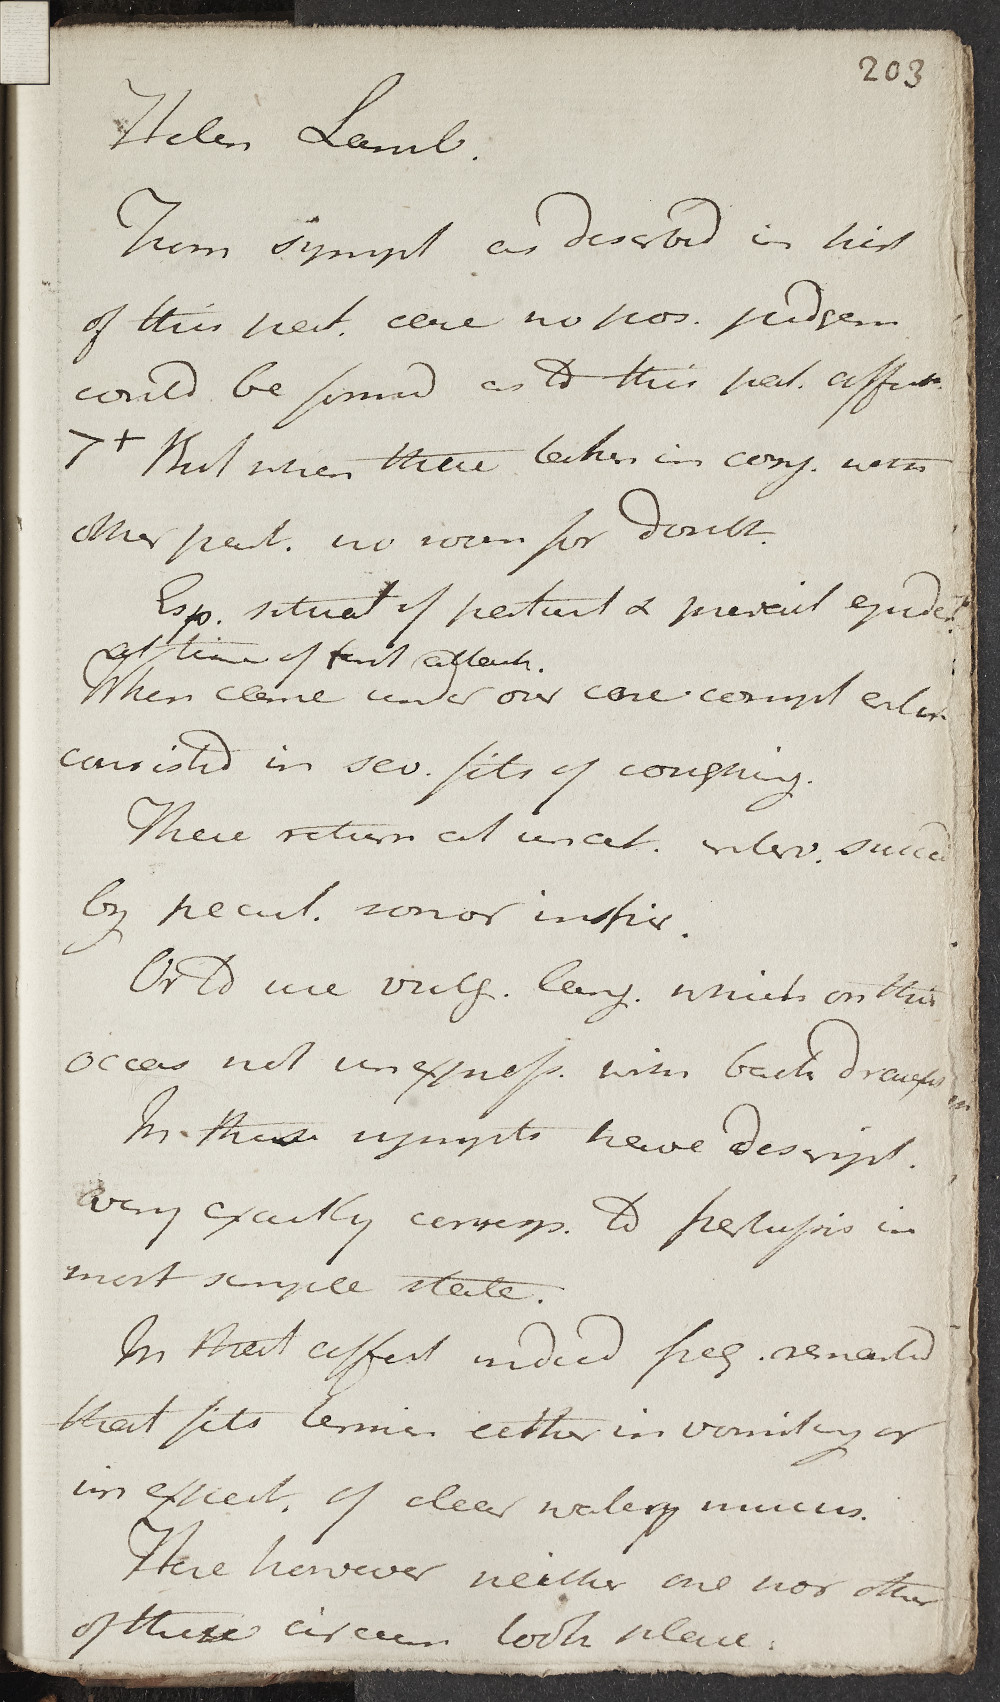 203
Helen Lamb.
From sympt as describd in hist
of this pat. case no pos. judgem
could be formd as to this pat. affect.
7+ But when these taken in conj. with
other part. no room for doubt.
Esp. situat of patient & prevail epidem
at time of first attack.
When came under our care compl
consisted in sev. fits of coughing.
These return at uncert. interv. succeed
by pecul. sonor inspir.
Or to use vulg. lang. which on this
occas not unexpress. with back draught
In these sympts have descript.
very exactly corresp. to pertussis in
most simple state.
In that affect indeed freq. remarkd
that fits termin either in vomiting or
in expect. of clear watery mucus.
Here however neither one nor other
of these circum took place.